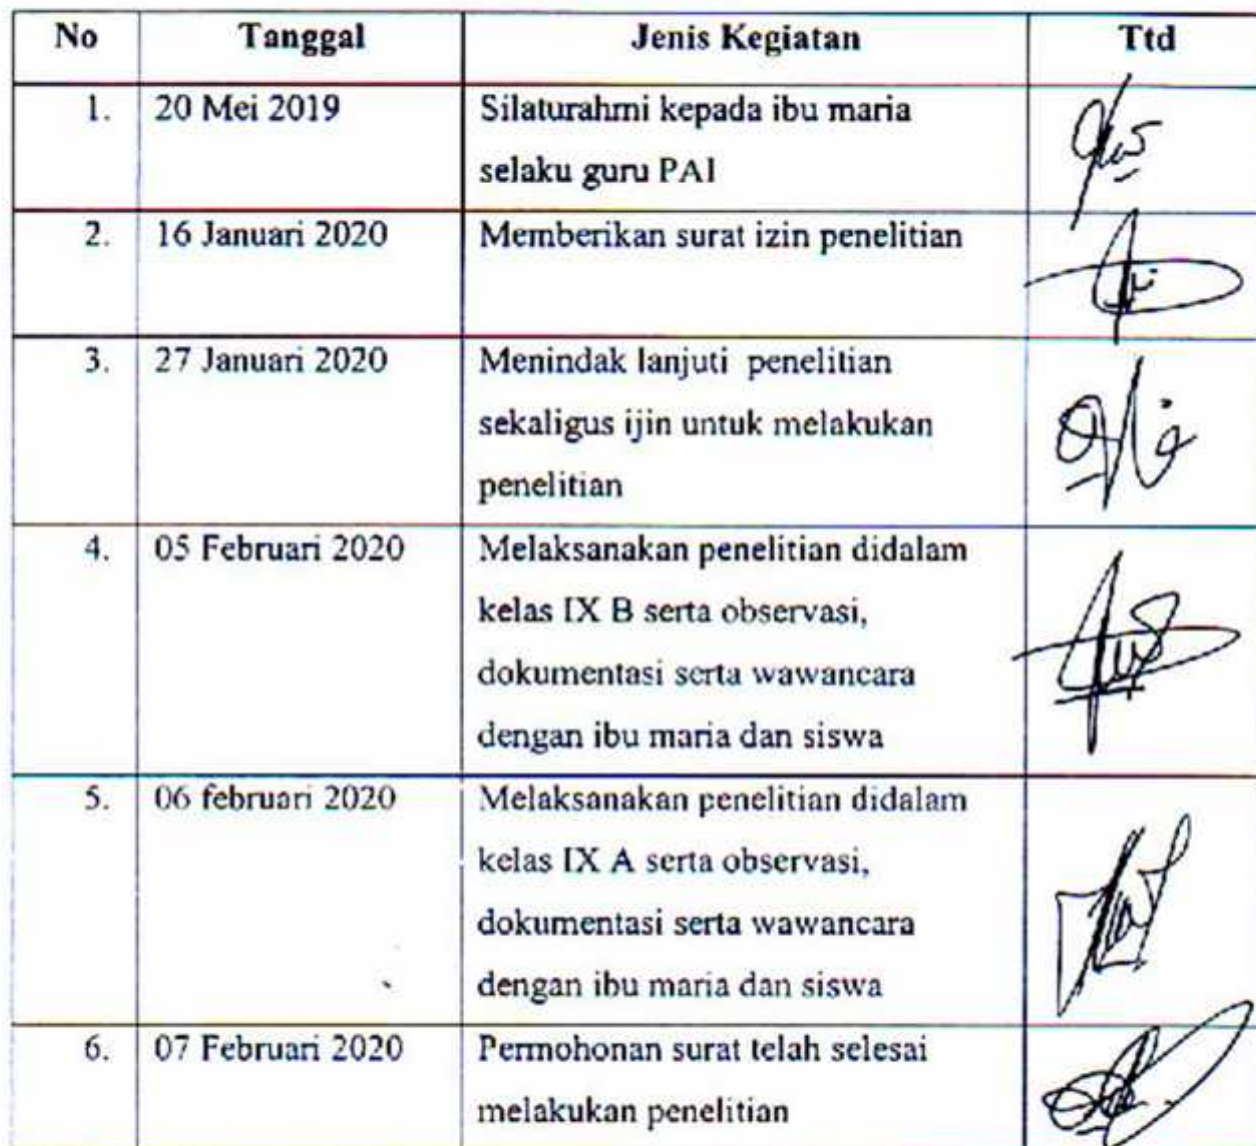 No Tanggal Jenis Kegiatan Ttd
1. 20 Mei 2019 Silaturahmi kepada ibu maria
selaku guru PAI
2. 16 Januari 2020 Memberikan surat izin penelitian
3. 27 Januari 2020 Menindak lanjuti penelitian
sekaligus ijin untuk melakukan
penelitian
4. 05 Februari 2020 Melaksanakan penelitian didalam
kelas IX B serta observasi,
dokumentasi serta wawancara
dengan ibu maria dan siswa
5. 06 februari 2020 Melaksanakan penelitian didalam
kelas IX A serta observasi,
dokumentasi serta wawancara
dengan ibu maria dan siswa
6. 07 Februari 2020 Permohonan surat telah selesai
melakukan penelitian